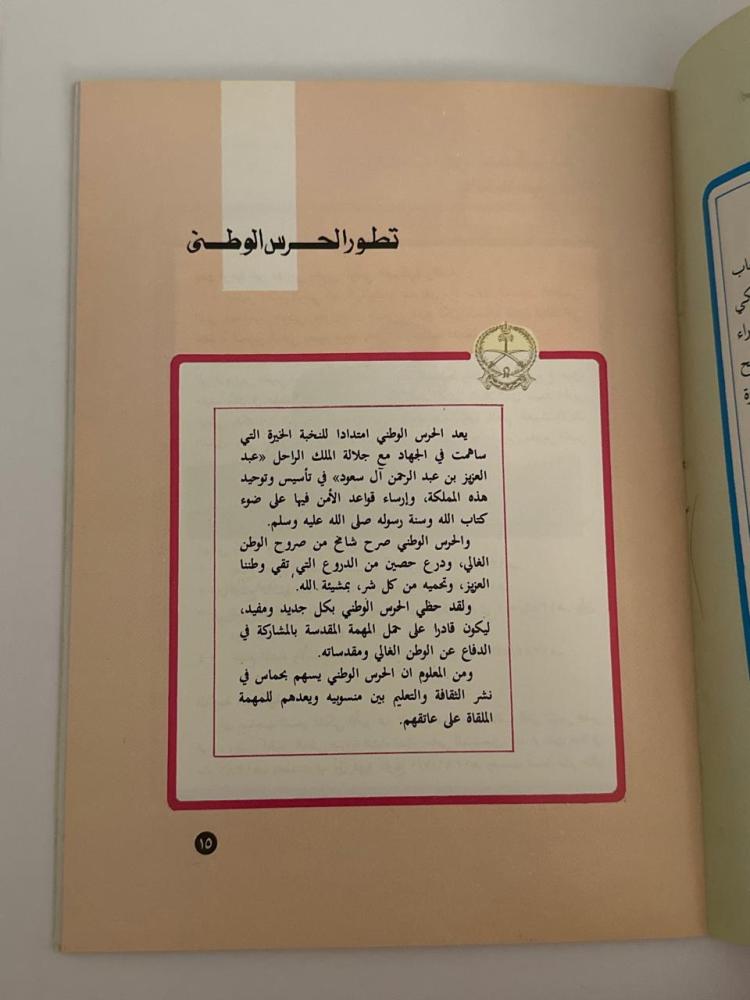 تطور الحرس الوطنى
يعد الحرس الوطني امتدادا للنخبة الخيرة التي
ساهمت في الجهاد مع جلالة الملك الراحل «عبد
العزيز بن عبد الرحمن آل سعود» في تأسيس وتوحيد
هذه المملكة، وإرساء قواعد الأمن فيها على ضوء
كتاب الله وسنة رسوله صلى الله عليه وسلم.
والحرس الوطني صرح شامخ من صروح الوطن
الغالي، ودرع حصين من الدروع التي تقي وطننا
العزيز، وتحميه من كل شر، بمشيئة الله.
ولقد حظي الحرس الوطني بكل جديد ومفيد،
ليكون قادرا على حمل المهمة المقدسة بالمشاركة في
الدفاع عن الوطن الغالي ومقدساته.
ومن المعلوم ان الحرس الوطني يسهم بحماس في
نشر الثقافة والتعليم بين منسوبيه ويعدهم للمهمة
الملقاة على عاتقهم.
١٥